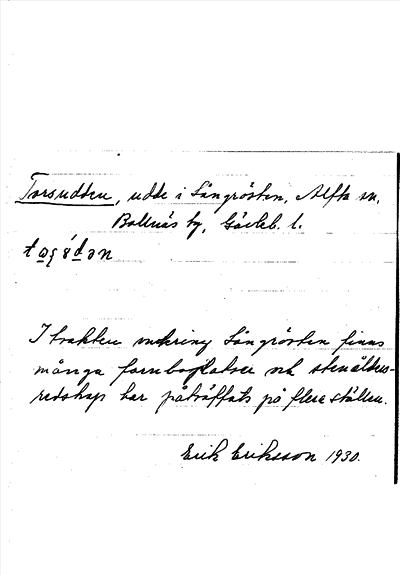 Torsudden, udde i Långrösten, Alfta sn,
Bollnäs ty, Gävleb. l.
I trakten omkring Långrösten finns
många fornboplatser och stenålders-
redskap har påträffats på flera ställen.
Erik Eriksson 1930.